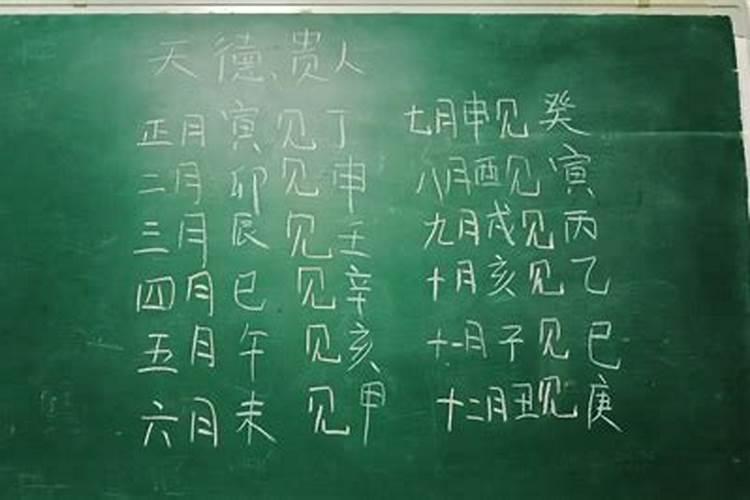 天德贵人
正月寅见丁
二月卯见申
三月辰见壬
四月巳见辛
五月午见亥
六月未见甲
七月申见癸
八月酉见寅
九月戌见丙
十月亥见乙
十一月子见巳
十二月丑见庚